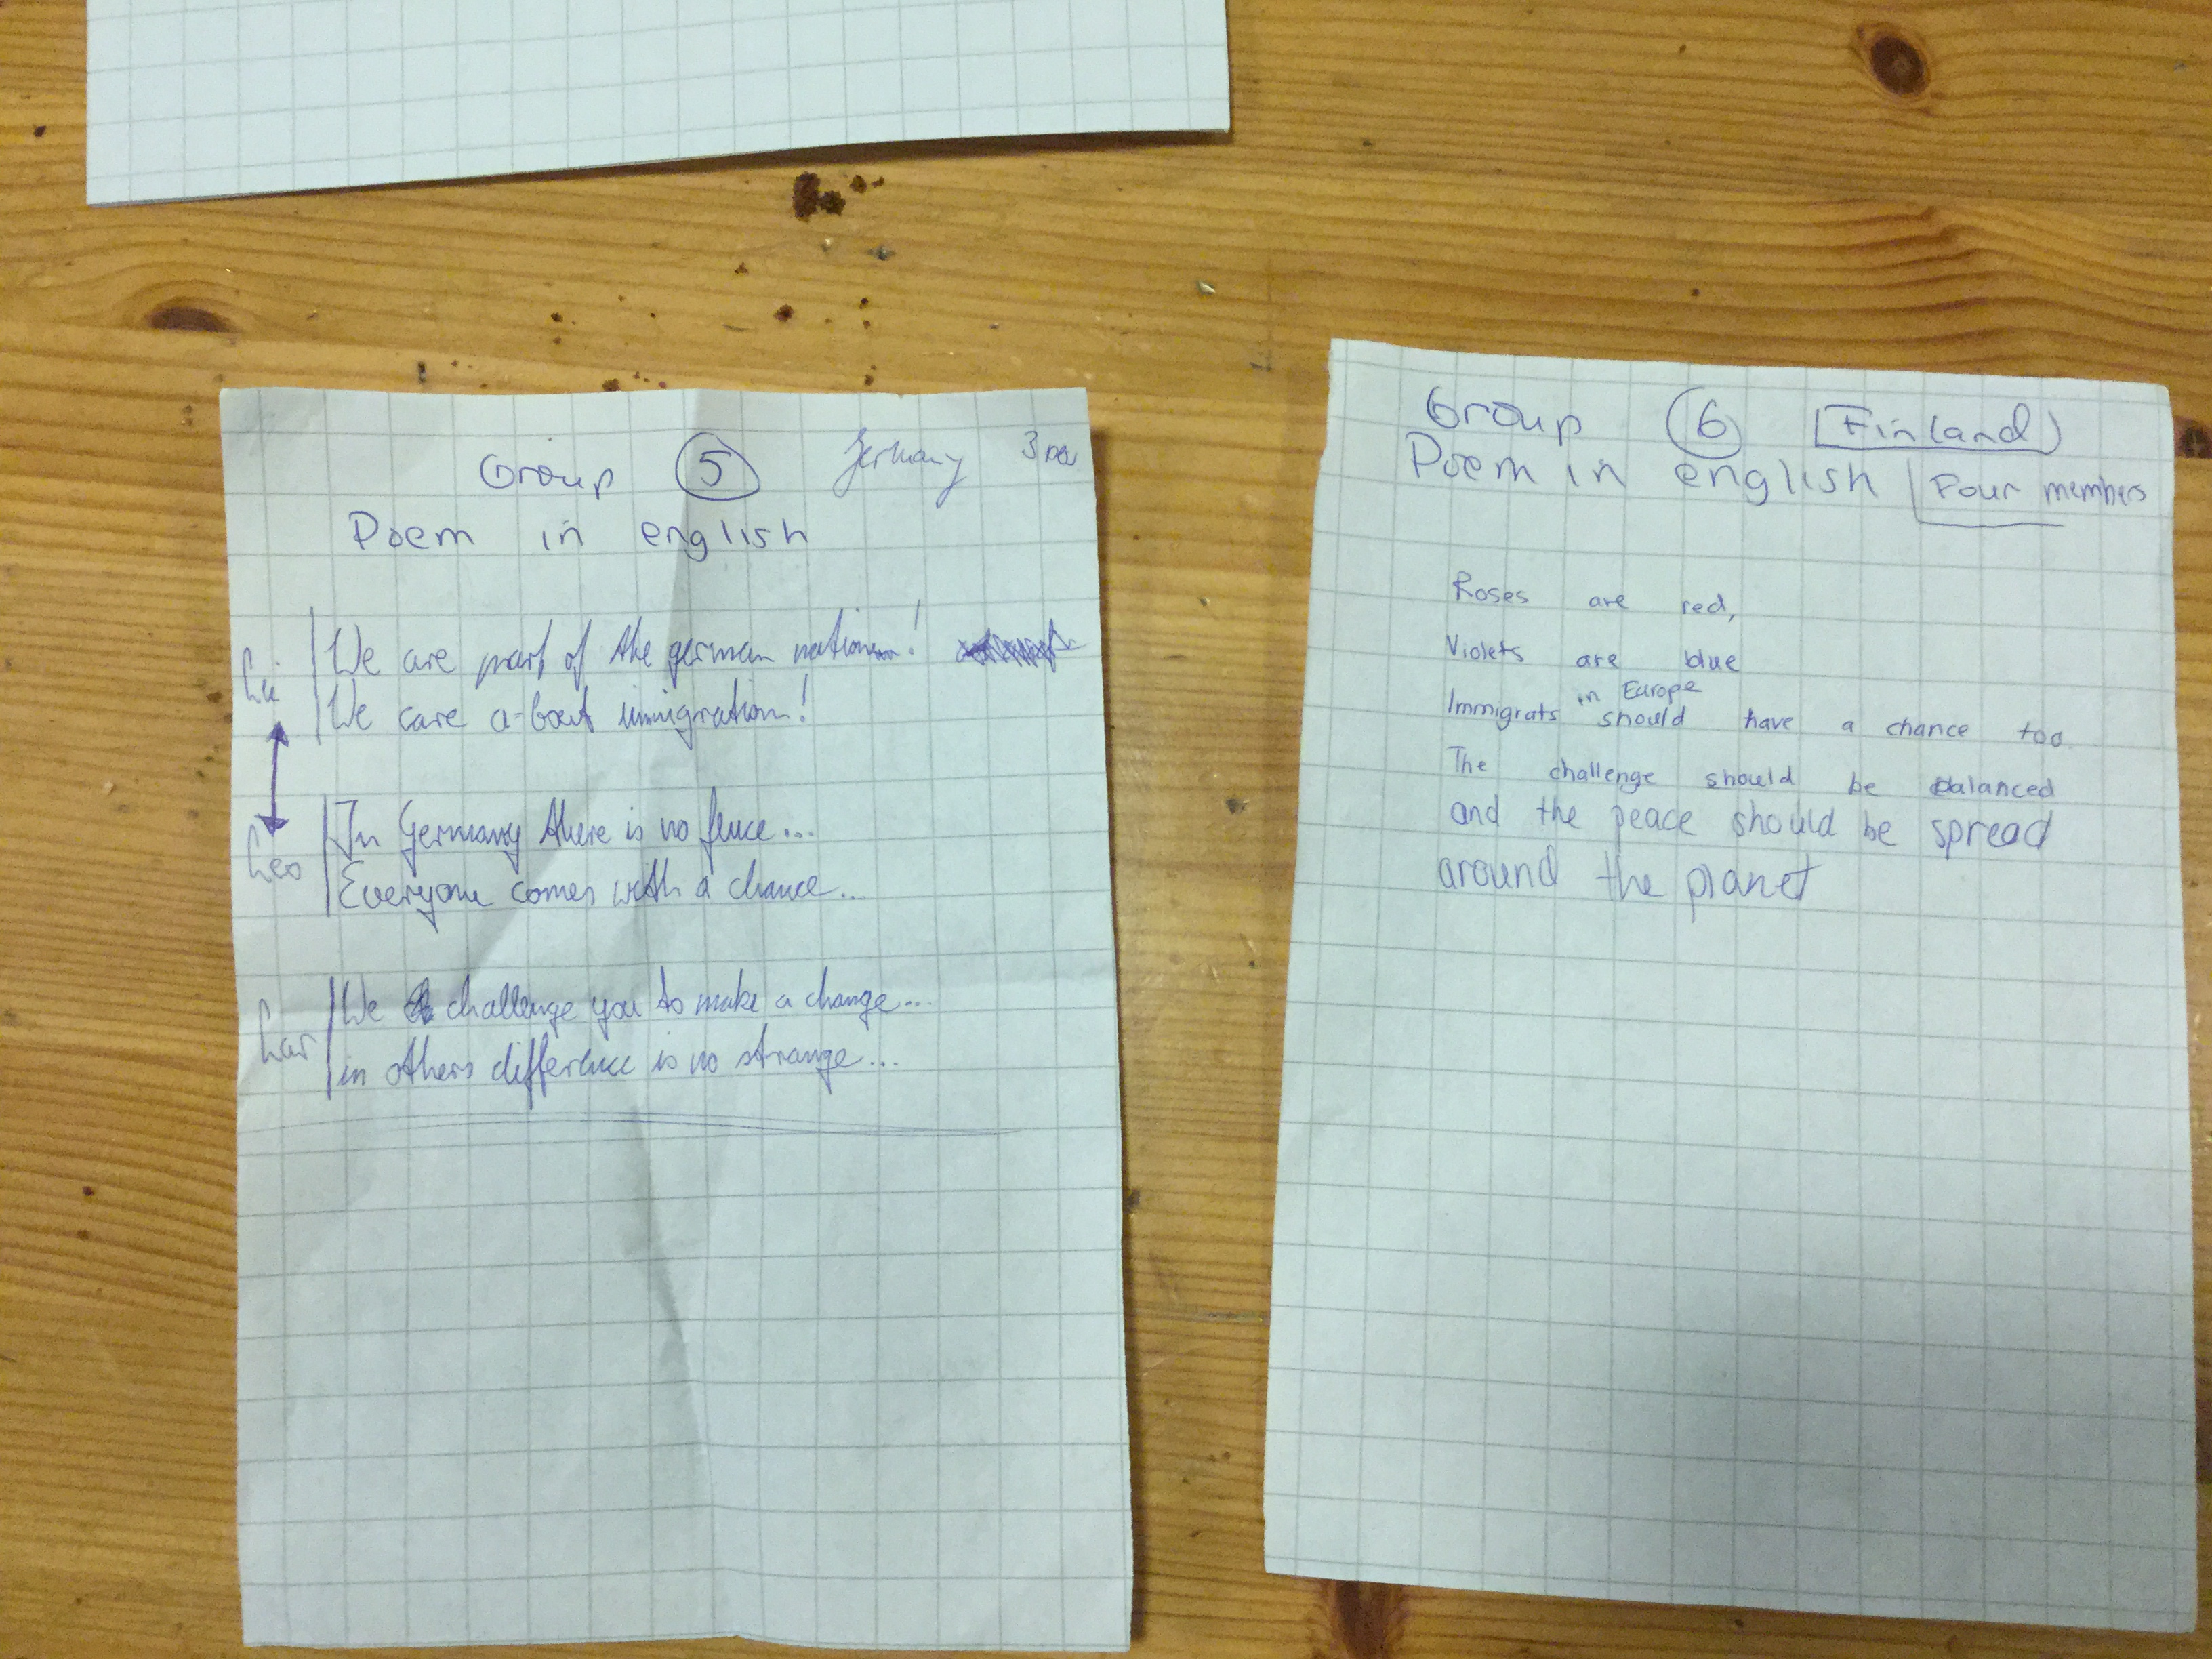 Group 5 Germany 3
Poem in english
We are part of the german nation!
We care a-bout immigration!
In Germany there is no fence...
Leo
Everyone comes with a chance...
We challenge you to make a change...
in others difference is no strange...
Group 6 Finland
Poem in english Four members
Roses are red,
Violets are blue
in Europe
Immigrats should have a chance too.
The challenge should be balanced
and the peace should be spread
around the planet